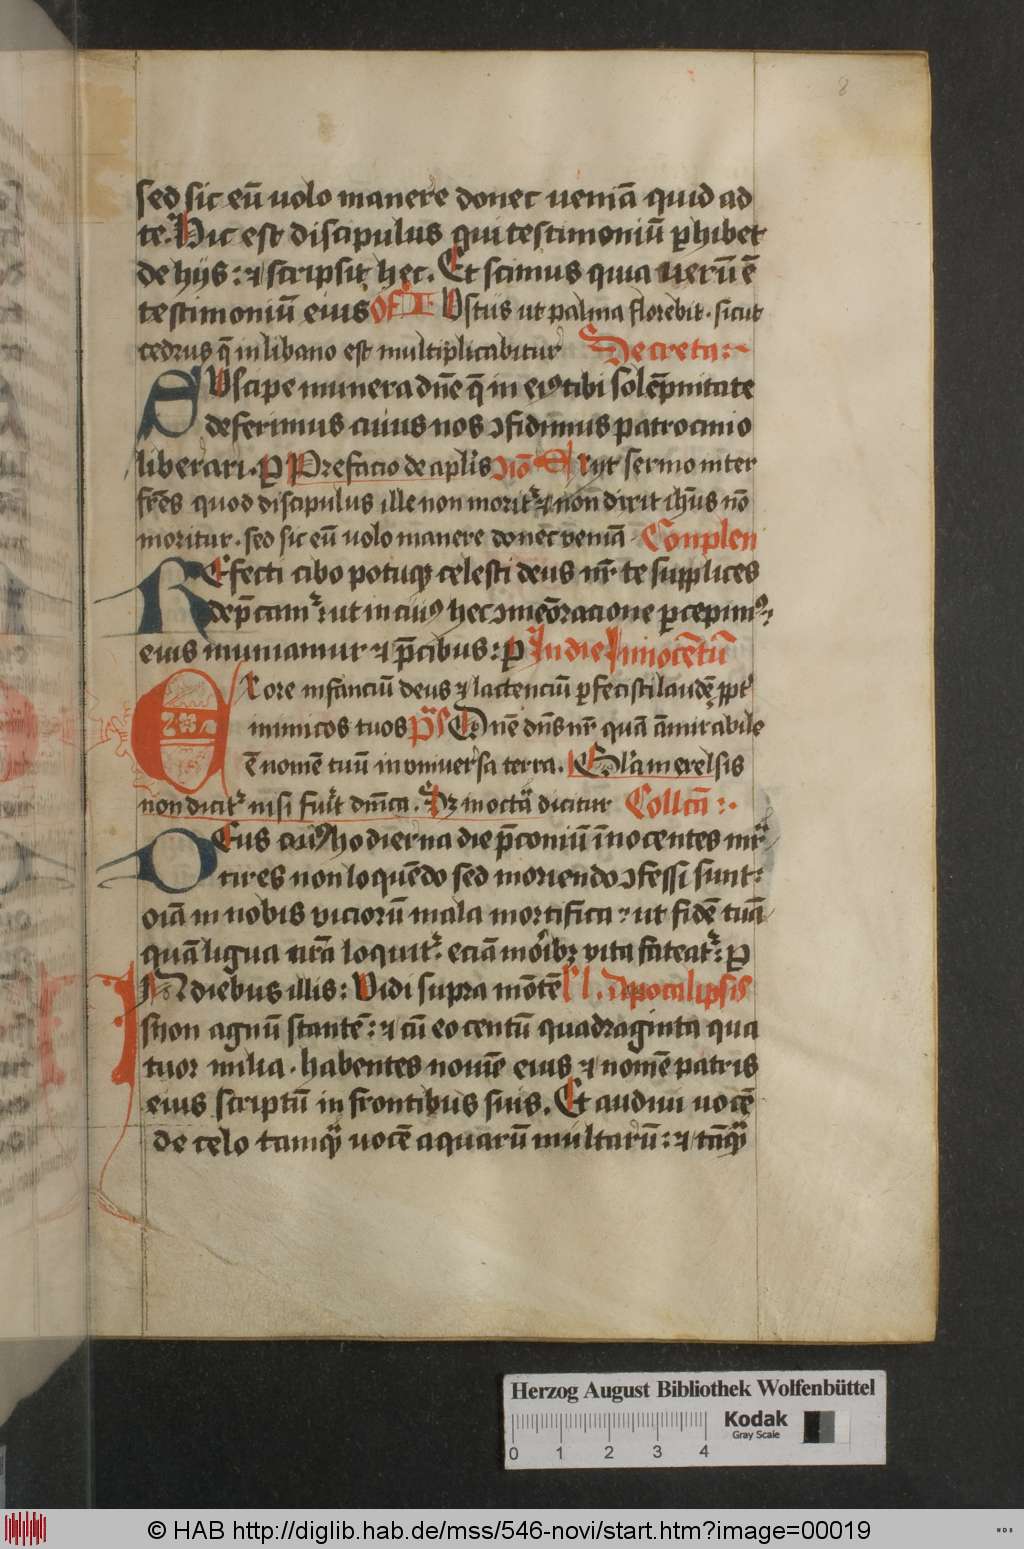 8
sed sic eū uolo manere donec ueniā quid ad
te. Hic est discipulus qui testimoniū ꝑhibet
de hijs: ⁊ scripsit hec. Et scimus quia uerū ē
testimoniū eius OFF Iustus ut palma florebit. sicut
cedrus q̄ in libano est multiplicabitur Secreta:
SUscipe munera dn̄e q̄ in eiꝰ tibi solēpnitate
deferimus cuius nos ↄfidimus patrocinio
liberari. ꝑ Prefacio de apl̄is Cōio Exijt sermo inter
fr̄es quod discipulus ille non moritᷣ ⁊ non dixit ih̄us nō
moritur. sed sic eū uolo manere donec veniā Conplen
REfecti cibo potuqꝫ celesti deus nr̄ te supplices
dep̄camᷣ ut in cuiꝰ hec ↄmēoracione ꝑcepimꝰ
eius muniamur ⁊ p̄cibus: ꝑ In die Innocētū
EX ore infanciū deus ⁊ lactenciū ꝑfecisti laudē ꝓpt᷑
inimicos tuos pͣs Dn̄e dn̄s nr̄ quā ām̄irabile
ē nomē tuū in vniuersa terra. Gl̄a in excelsis
non dicitᷣ nisi fu᷑it dn̄ica. Sꝫ in octā dicitur Coll̄cā :.
DEus cuiꝰ hodierna die p̄coniū īnocentes mr̄
tires non loquēdo sed moriendo ↄfessi sunt:
oīa in nobis viciorū mala mortifica ⁊ ut fidē tuā
quā ligua nr̄a loquitᷣ. eciā mōibꝫ vita fateatᷣ: ꝑ
IN diebus illis: Vidi supra mōtē l̄l. Apocalipsis
syon agnū stantē: ⁊ cū eo centū quadraginta qua
tuor milia. habentes nomē eius ⁊ nomē patris
eius scriptū in frontibus suis. Et audiui uocē
de celo tamqͣ uocē aquarū multarū: ⁊ tāqͣ
Herzog August Bibliothek Wolfenbüttel
Kodak
Gray Scale
0 1 2 3 4
© HAB http://diglib.hab.de/mss/546-novi/start.htm?image=00019